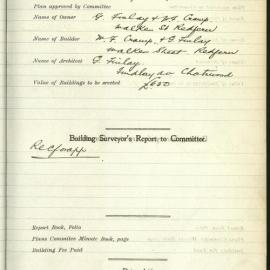 Plan approved by Committee
Name of Owner G. Finlay & W J Cramp
Walker St Redfern
Name of Builder W. J. Cramp, & G Finlay
Walker Street Redfern
Name of Architect G. Finlay
Findlay av Chatswood
Value of Buildings to be erected £650
Building Surveyor's Report to Committee.
Rec for app
Report Book, Folio
Plans Committee Minute Book, page
Building Fee Paid